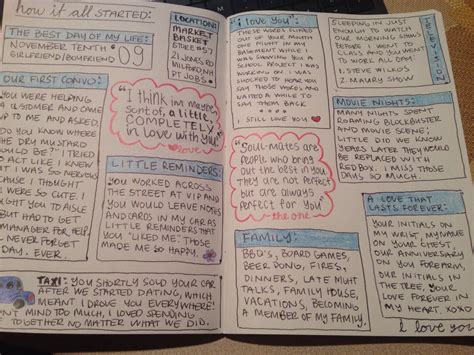 how it all STARTED:
THE BEST DAY OF MY LIFE:
NOVEMBER TENTH
GIRLFRIEND/BOYFRIEND
09
LOCATION:
MARKET
BASKET
STORE #57
21 JONES RD
MILFORD NH
PT JOBS!
OUR FIRST CONVO:
YOU WERE HELPING
A CUSTOMER AND CAME
UP TO ME AND ASKED,
DO YOU KNOW WHERE
THE DRY MUSTARD
WOULD BE? I TRIED
TO ACT LIKE I KNEW
IT WAS SO NERVOUS
BECAUSE I THOUGHT
WERE SO CUTE. I
BUT HAD TO GET
MANAGER FOR HELP.
NEVER FORGET
EVER.
"I think im maybe,
sort of, a little,
COMPLETELY
in love with you"
love
LITTLE REMINDERS:
YOU WORKED ACROSS
THE STREET AT VIP AND
YOU WOULD LEAVE NOTES
AND CARDS IN MY CAR AS
LITTLE REMINDERS THAT
YOU "LIKED ME". THOSE
MADE ME SO HAPPY.
TAXI: YOU SHORTLY SOLD YOUR CAR
AFTER WE STARTED DATING, WHICH
MEANT I DROVE YOU EVERYWHERE!
MIND TOO MUCH, I LOVED SPENDING
TOGETHER NO MATTER WHAT WE DID.
"i love you":
THESE WORDS SLIPPED
OUT OF YOUR MOUTH
ONE NIGHT IN MY
BASEMENT WHILE I
WAS SHOWING YOU A
SCHOOL PROJECT I WAS
WORKING ON. I WAS
SHOCKED TO HEAR YOU
SAY THOSE WORDS AND
WAITED A WHILE TO
SAY THEM BACK.
I STILL LOVE YOU
"Soul-mates are
people who bring
out the best in you
They are not perfect
but are always
perfect for you"
the one
FAMILY:
BBQ'S, BOARD GAMES,
BEER PONG, FIRES,
DINNERS, LATE NIGHT
TALKS, FAMILY HOUSE,
VACATIONS, BECOMING
A MEMBER OF MY FAMILY.
SLEEPING IN JUST
ENOUGH TO WATCH
OUR MORNING SHOWS
BEFORE I WENT TO
CLASS AND YOU WENT
TO WORK ALL DAY:
1. STEVE WILKOS
2. MAURY SHOW
TELEVISION
MOVIE NIGHTS:
MANY NIGHTS SPENT
ROAMING BLOCKBUSTER
AND MOVIE SCENE!
LITTLE DID WE KNOW
YEARS LATER THEY WOULD
BE REPLACED WITH
REDBOX. I MISS THOSE
DAYS SO MUCH
A LOVE THAT
LASTS FOREVER:
YOUR INITIALS ON
MY WRIST, MY NAME
ON YOUR CHEST,
OUR ANNIVERSARY
ON YOU FOREARM
OUR INITIALS IN
THE TREE, YOUR
LOVE FOREVER IN
MY HEART. XOXO
I love you